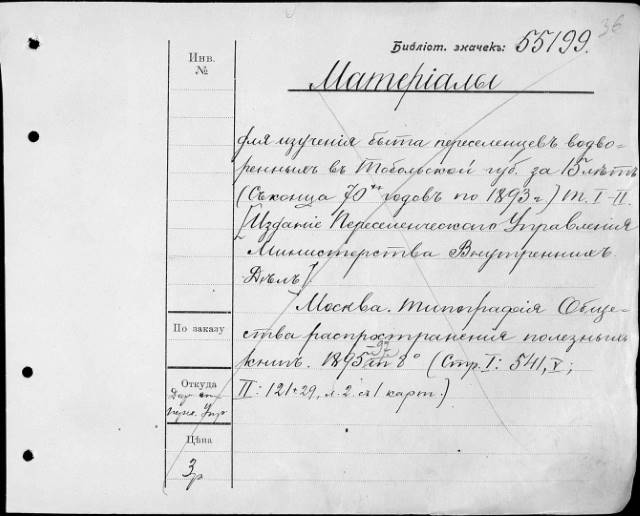 36
Библіот. значекъ: 55199.
Инв.
№
Матеріалы
для изученія быта переселенцевъ водво-
ренныхъ въ Тобольской губ. за 15 лѣтъ
(Съ конца 70хъ годовъ по 1893 г.) т. I-II.
[Изданіе Переселенческаго Управленія
Министерства Внутреннихъ
Дѣлъ].
Москва. Типографія Обще-
ства распространения полезныхъ
книгъ. 1895-97 in 8° (Стр. I: 541, V;
II: 121+29, л. 2. съ 1 карт.)
По заказу
Откуда
Дар отъ
Перес. Упр
Цѣна
3 р